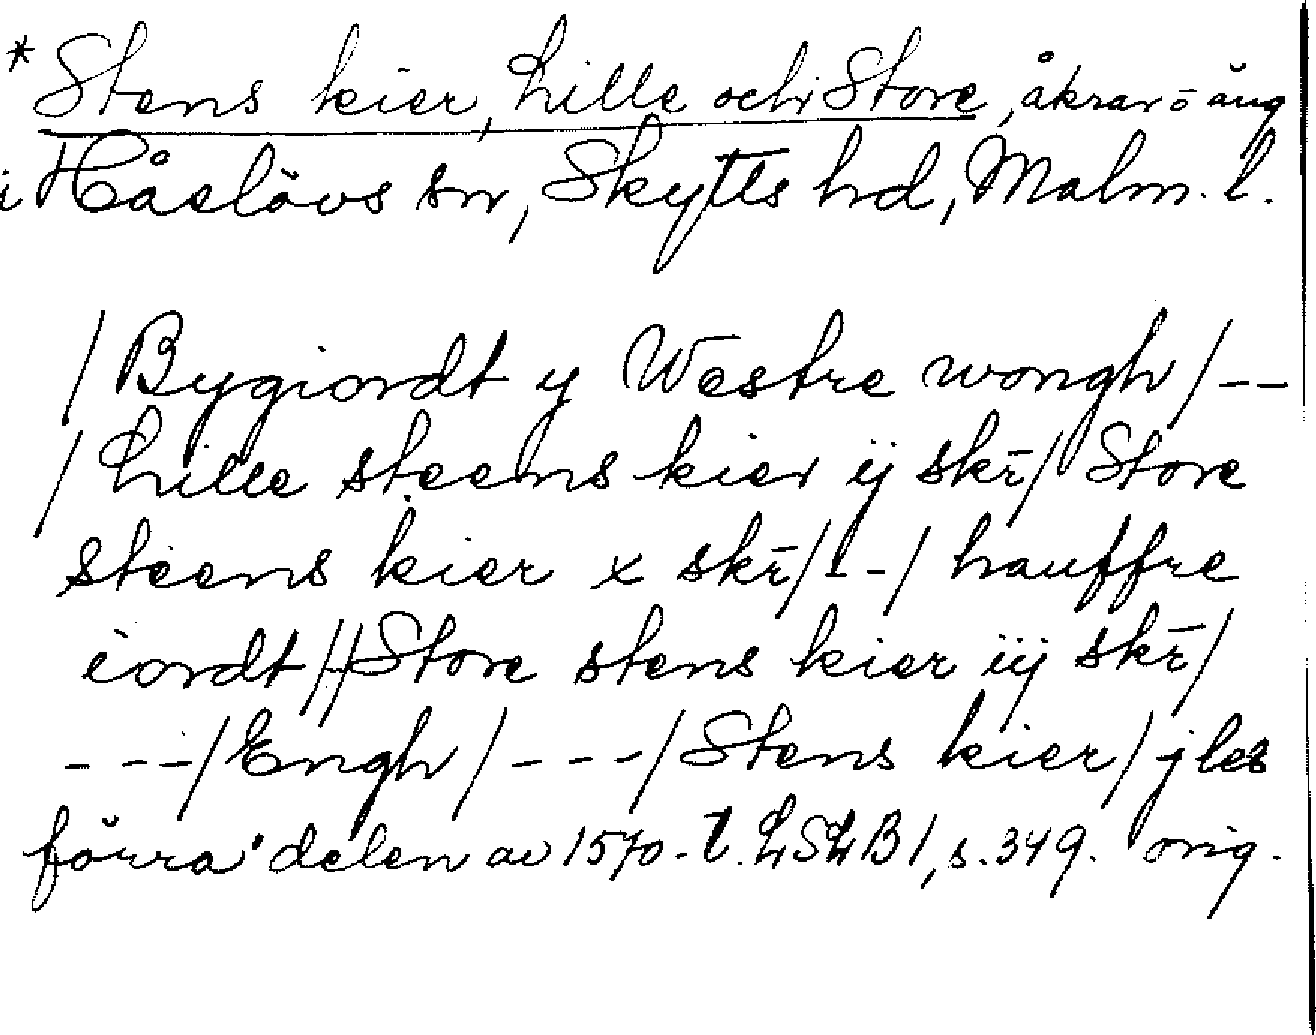 * Stens kier, Lille och Store, åkrar o äng
i Håslövs sn, Skytts hd, Malm. l.
/ Bygiordt y Westre wongh / --
/ Lille steens kier ij skr̄ / Store
steens kier x skr̄ / -- / hauffre
iordt // Store stens kier iij skr̄ /
--- / Engh / --- / Stens kier / j les
förra delen av 1570-t. LSLB 1, s. 349. orig.